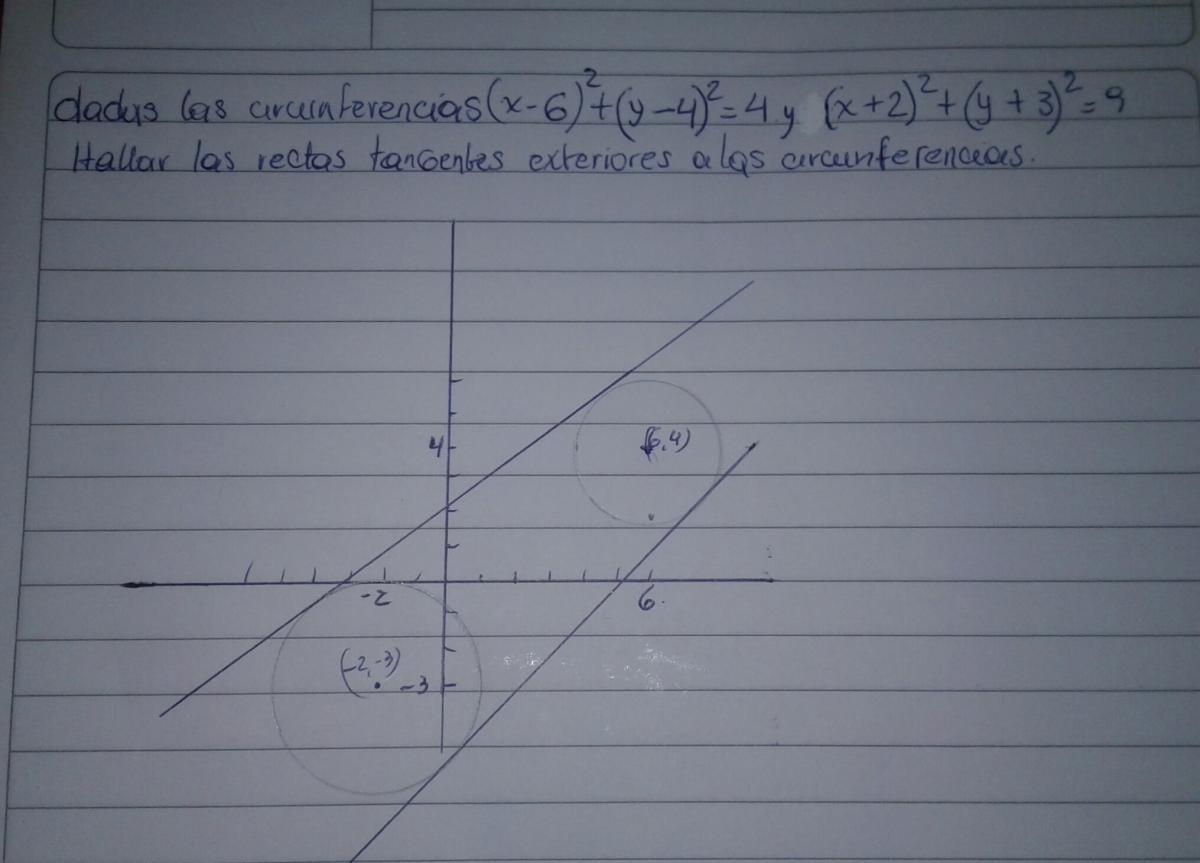 dadas las circunferencias (x-6)²+(y-4)²=4 y (x+2)²+(y+3)²=9
Hallar las rectas tangentes exteriores a las circunferencias.
4
(6,4)
-2
6
(-2,-3)
-3